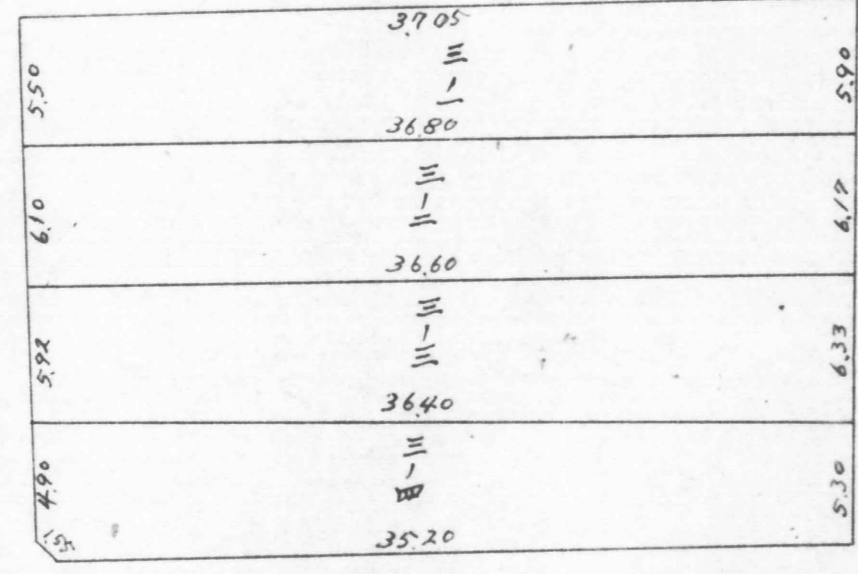 37.05
5.50
三-一
5.90
36.80
6.10
三-二
6.17
36.60
5.92
三-三
6.33
36.40
4.90
三-四
5.30
1.55
35.20